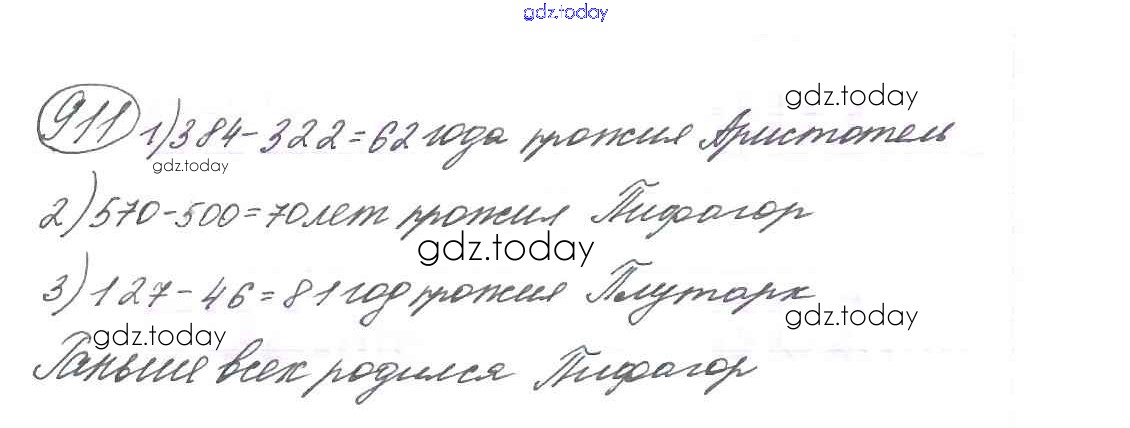 gdz.today
gdz.today
911 1) 384 - 322 = 62 года прожил Аристотель
gdz.today
2) 570 - 500 = 70 лет прожил Пифагор
gdz.today
3) 127 - 46 = 81 год прожил Плутарх
gdz.today
gdz.today
Раньше всех родился Пифагор